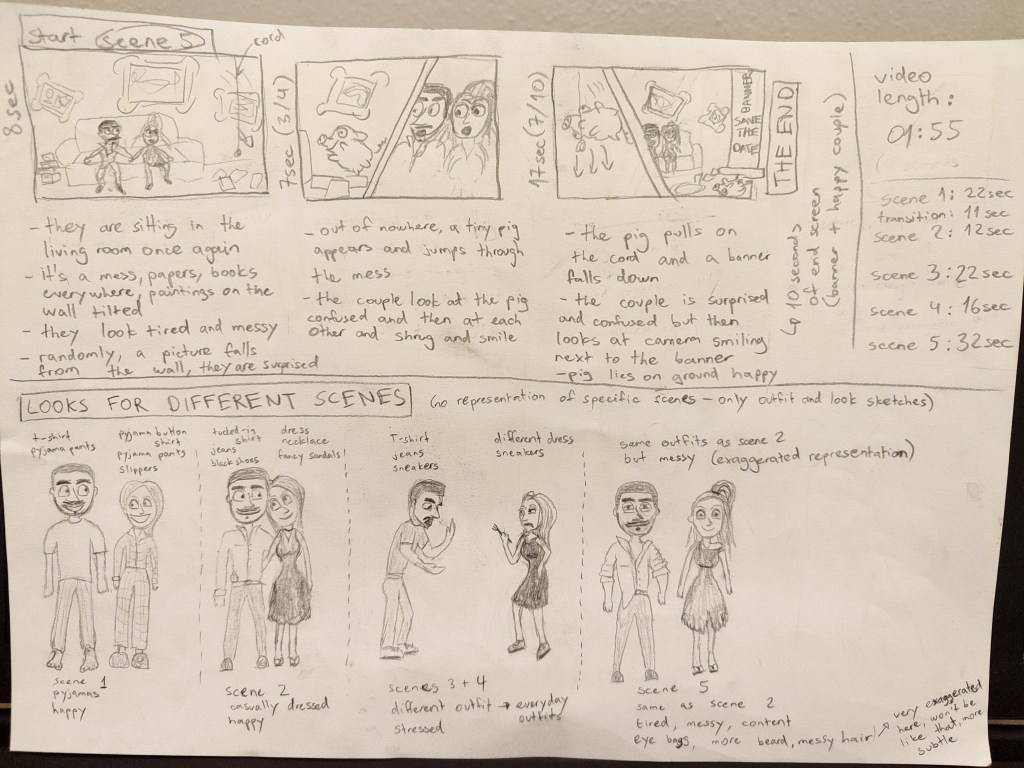 start scene 5
cord
8sec
7sec (3/4)
17sec (7/10)
BANNER
SAVE
THE
DATE
THE END
↳ 10 seconds
of end screen
(banner + happy couple)
- they are sitting in the
living room once again
- it's a mess, papers, books
everywhere, paintings on the
wall tilted
- they look tired and messy
- randomly, a picture falls
from the wall, they are surprised
- out of nowhere, a tiny pig
appears and jumps through
the mess
- the couple look at the pig
confused and then at each
other and shrug and smile
- the pig pulls on
the cord and a banner
falls down
- the couple is surprised
and confused but then
looks at camera smiling
next to the banner
- pig lies on ground happy
video
length:
01:55
scene 1: 22sec
transition: 11sec
scene 2: 12sec
scene 3: 22sec
scene 4: 16sec
scene 5: 32sec
LOOKS FOR DIFFERENT SCENES
(no representation of specific scenes - only outfit and look sketches)
t-shirt
pyjama pants
pyjama button
shirt
pyjama pants
slippers
tucked-in
shirt
jeans
black shoes
dress
necklace
fancy sandals
T-shirt
jeans
sneakers
different dress
sneakers
same outfits as scene 2
but messy (exaggerated representation)
scene 1
pyjamas
happy
scene 2
casually dressed
happy
scenes 3 + 4
different outfit → everyday
outfits
stressed
scene 5
same as scene 2
tired, messy, content
eye bags, more beard, messy hair
↗ very exaggerated
here, won't be
like that, more
subtle